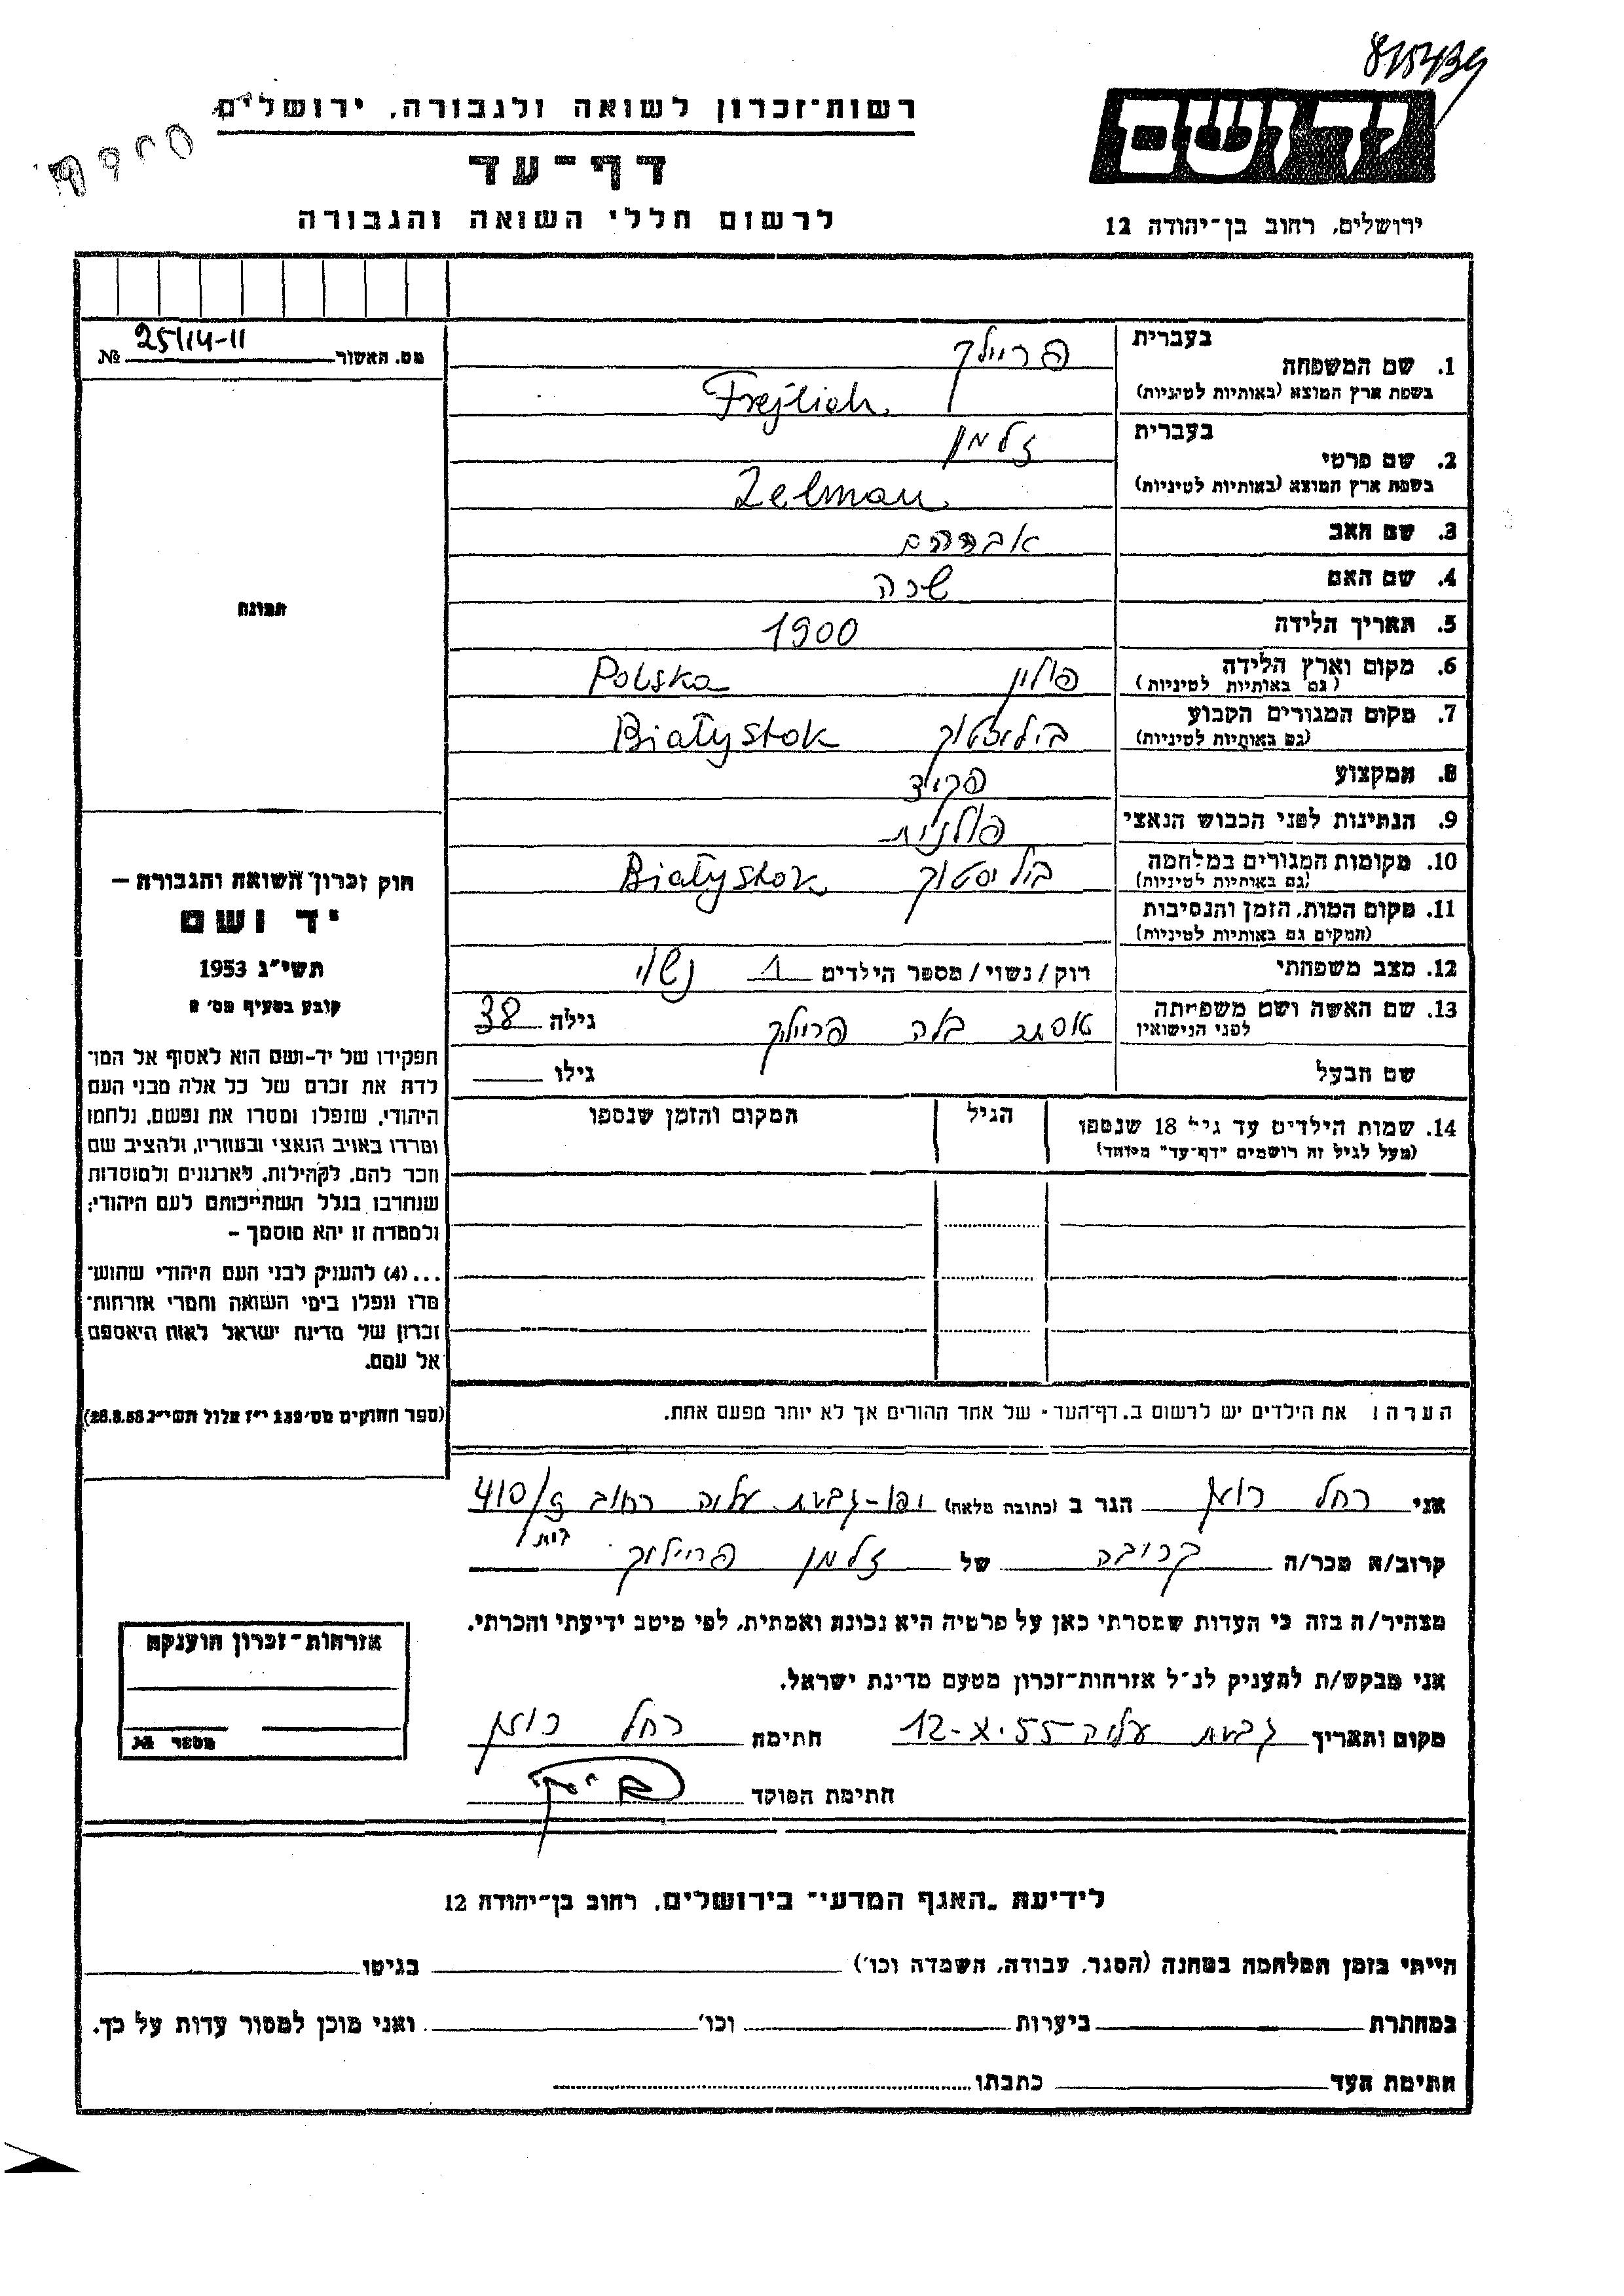 815439
רשות־זכרון לשואה ולגבורה, ירושלים
דף־עד
לרשום חללי השואה והגבורה
יד ושם
ירושלים, רחוב בן־יהודה 12
מס. האשור № 25/14-11
תמונה
חוק זכרון השואה והגבורה –
יד ושם
תשי״ג 1953
קובע בסעיף מס׳ 2
תפקידו של יד-ושם הוא לאסוף אל המו־
לדת את זכרם של כל אלה מבני העם
היהודי, שנפלו ומסרו את נפשם, נלחמו
ומרדו באויב הנאצי ובעוזריו, ולהציב שם
וזכר להם, לקהילות, לארגונים ולמוסדות
שנחרבו בגלל השתייכותם לעם היהודי;
ולמטרה זו יהא מוסמך –
...(4) להעניק לבני העם היהודי שהוש־
מדו ונפלו בימי השואה והמרי אזרחות־
זכרון של מדינת ישראל לאות היאספם
אל עמם.
(ספר החוקים מס׳ 132 י״ז אלול תשי״ג 28.8.53)
בעברית
1. שם המשפחה פריילך
בשפת ארץ המוצא (באותיות לטיניות) Frejlich
בעברית
2. שם פרטי זלמן
בשפת ארץ המוצא (באותיות לטיניות) Zelman
3. שם האב אברהם
4. שם האם שרה
5. תאריך הלידה 1900
6. מקום וארץ הלידה פולין Polska
(גם באותיות לטיניות)
7. מקום המגורים הקבוע ביליסטוק Białystok
(גם באותיות לטיניות)
8. המקצוע פקיד
9. הנתינות לפני הכבוש הנאצי פולנית
10. מקומות המגורים במלחמה ביליסטוק Białystok
(גם באותיות לטיניות)
11. מקום המות, הזמן והנסיבות
(המקים גם באותיות לטיניות)
12. מצב משפחתי רוק/נשוי/מספר הילדים 1 נשוי
13. שם האשה ושם משפחתה אסתר בלה פריילך גילה 38
לפני הנישואין
שם הבעל גילו
14. שמות הילדים עד גיל 18 שנספו הגיל המקום והזמן שנספו
(מעל לגיל זה רושמים "דף־עד" מיוחד)
הערה: את הילדים יש לרשום ב„דף־העד״ של אחד ההורים אך לא יותר מפעם אחת.
אני רחל רוזן הגר ב (כתובה מלאה) יפו-גבעת עליה רחוב 410/9
קרוב/ה מכר/ה קרובה של זלמן פריילוך
מצהיר/ה בזה כי העדות שמסרתי כאן על פרטיה היא נכונה ואמתית, לפי מיטב ידיעתי והכרתי.
אני מבקש/ת להעניק לנ״ל אזרחות־זכרון מטעם מדינת ישראל.
מקום ותאריך גבעת עליה 12-X-55 חתימה רחל רוזן
חתימת הפוקד
אזרחות־זכרון הוענקה
מספר №
לידיעת „האגף המדעי״ בירושלים, רחוב בן־יהודה 12
הייתי בזמן המלחמה במחנה (הסגר, עבודה, השמדה וכו׳) בגיטו
במחתרת ביערות וכו׳ ואני מוכן למסור עדות על כך.
חתימת העד כתבתו